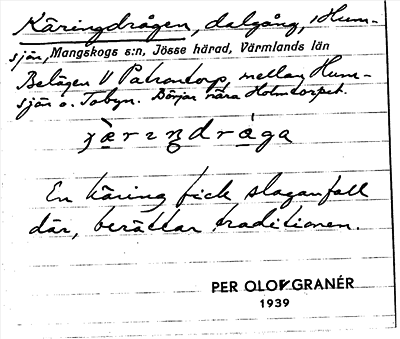 Käringdrågen, dalgång, i Hum-
sjön, Mangskogs s:n, Jösse härad, Värmlands län
Belägen V Patrontorp, mellan Hum-
sjön o. Tobyn. Börjar nära Holmtorpet.
En käring fick slaganfall
där, berättar traditionen.
PER OLOF GRANÉR
1939